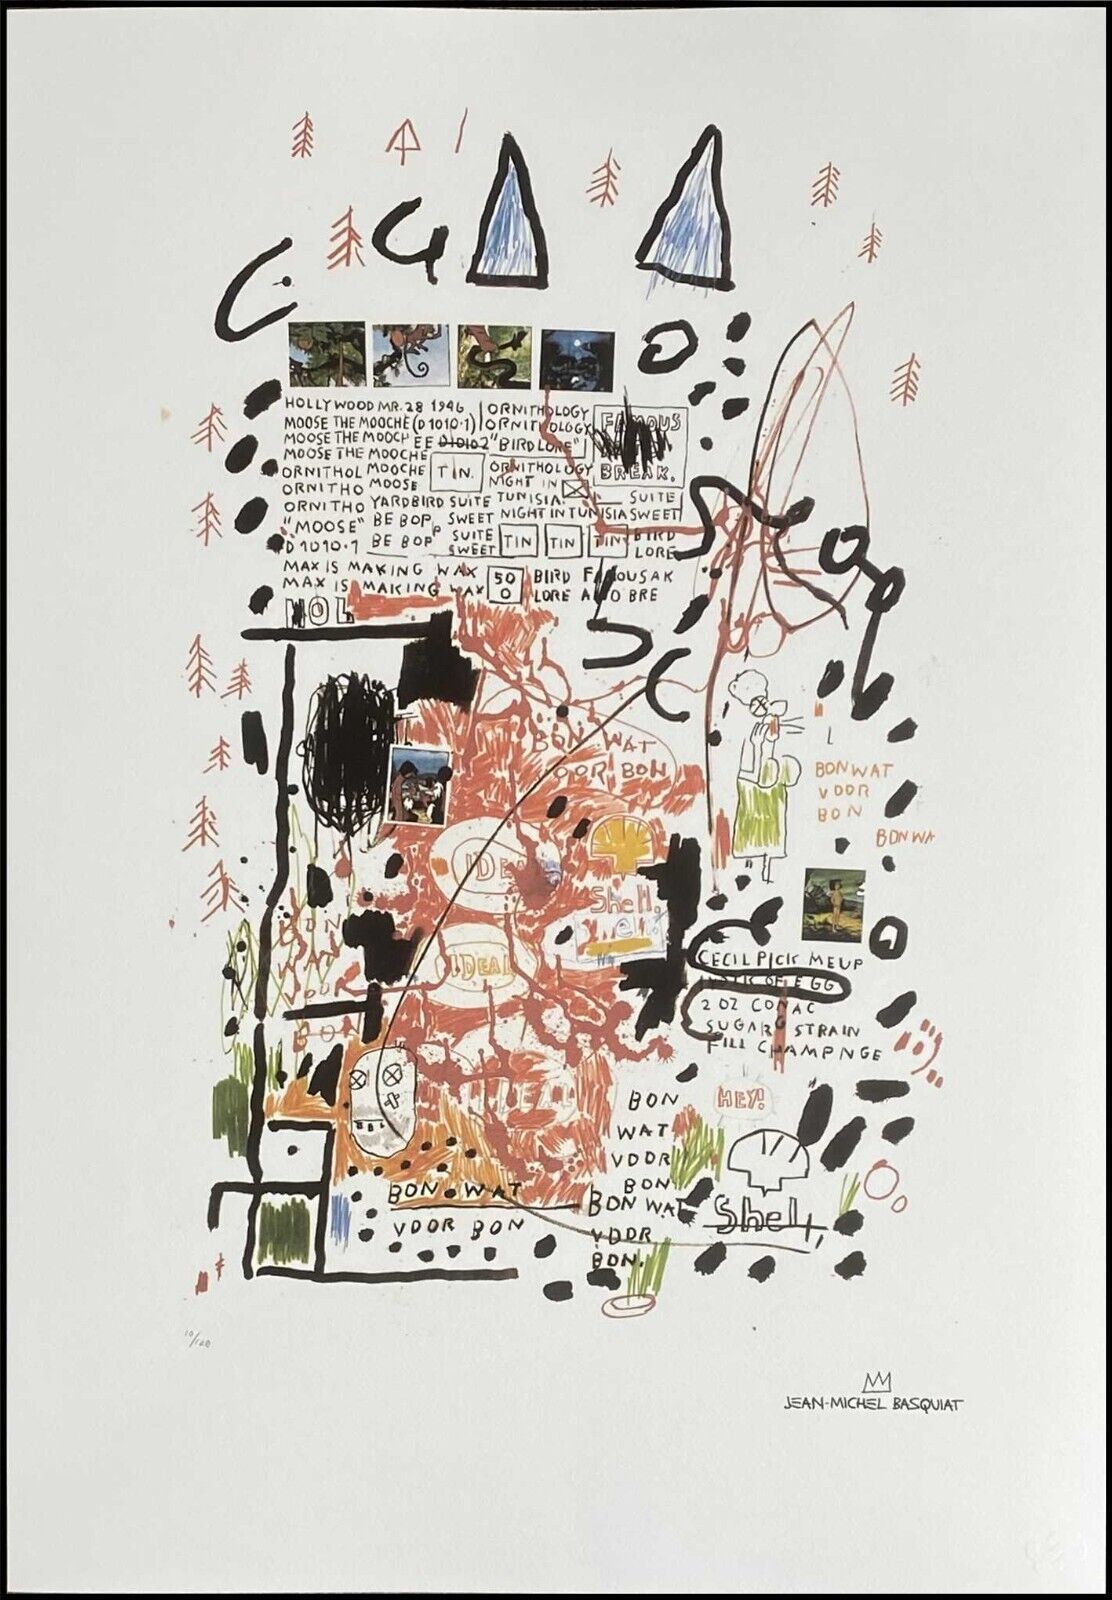 HOLLYWOOD MR. 28 1946 ORNITHOLOGY
MOOSE THE MOOCHE (D1010·1) ORNITHOLOGY
FAMOUS
MOOSE THE MOOCHEE D10102 "BIRD LORE"
MOOSE THE MOOCHE
BREAK.
ORNITHOL MOOCHE TIN. ORNITHOLOGY
ORNITHO MOOSE NIGHT IN
ORNITHO YARDBIRD SUITE TUNISIA. SUITE
"MOOSE" BE BOP SWEET NIGHT IN TUNISIA SWEET
D1010·1 BE BOP SUITE SWEET TIN TIN TIN BIRD LORE
MAX IS MAKING WAX 50 BIRD FAMOUSAK
MAX IS MAKING WAX 0 LORE ALTO BRE
HOL
BON WAT
VOOR BON
L
BON WAT
VOOR
BON
BON WA
IDEAL
Shell.
Shell.
IDEAL
BON
WAT
VOOR
BON
CECIL PICK ME UP
OF EGG
2 OZ CONAC
SUGAR STRAIN
FILL CHAMPNGE
HEY!
BON
WAT
VOOR
BON
BON WAT
VOOR
BON.
BON WAT
VOOR BON
Shell
10/100
JEAN-MICHEL BASQUIAT